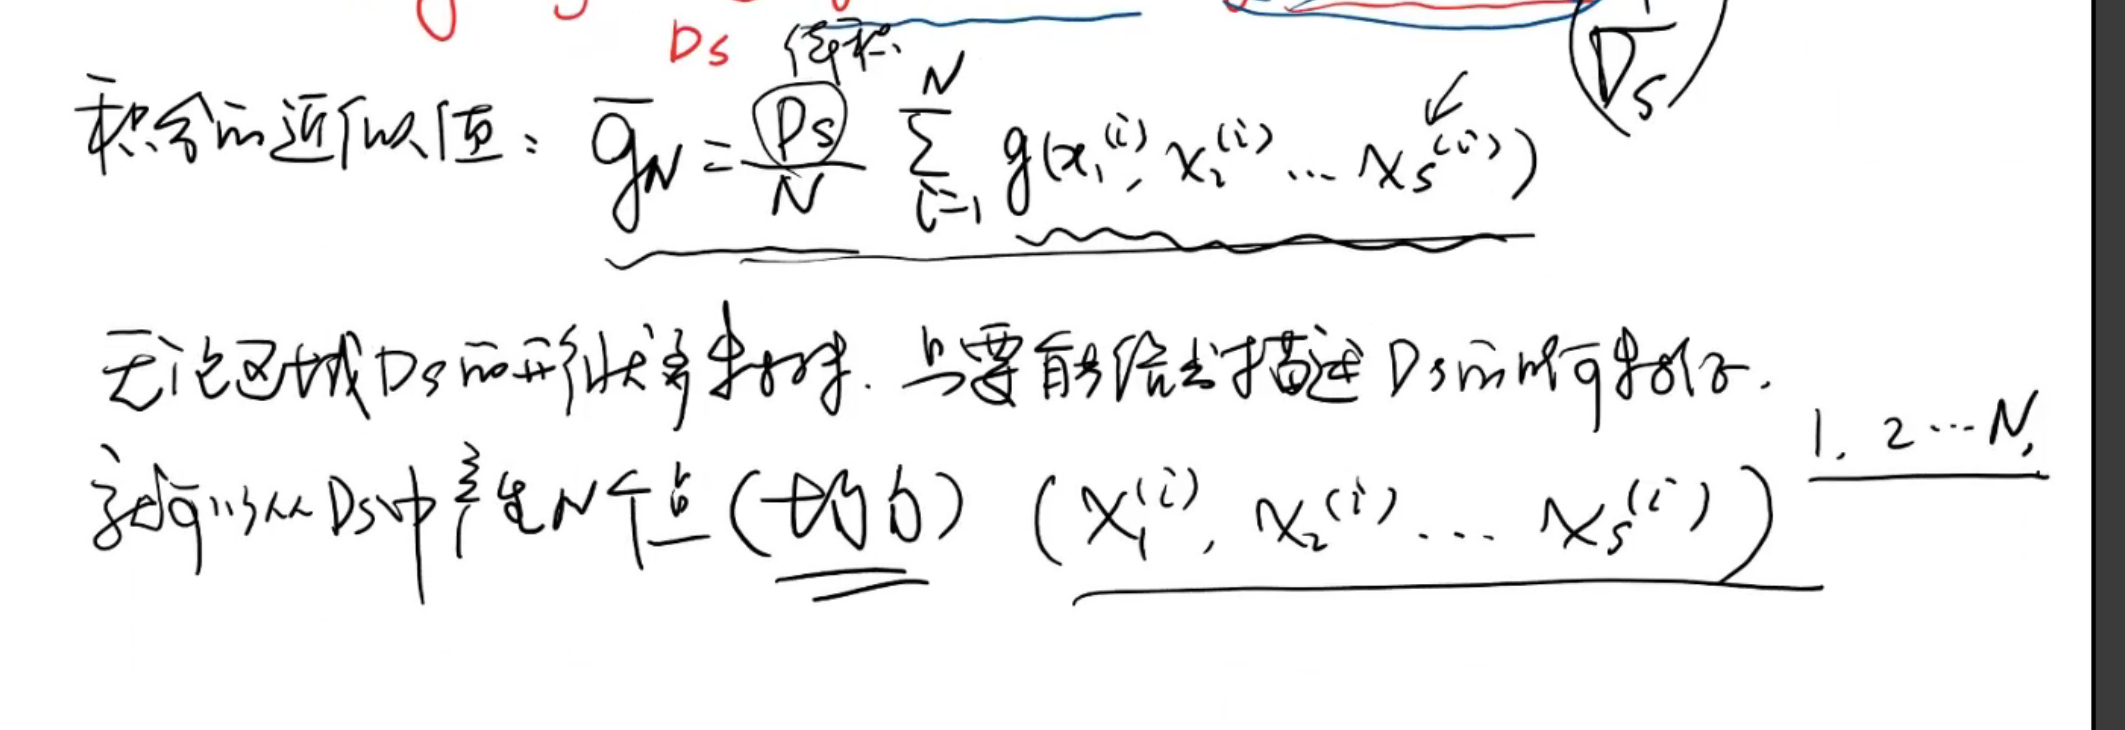 Ds 体积
1/Ds
积分的近似值: \overline{g}_N = \frac{Ds}{N} \sum_{i=1}^{N} g(x_1^{(i)}, x_2^{(i)} ... x_s^{(i)})
无论区域Ds的形状多特殊. 只要能给出描述Ds的几何特征.
就可以从Ds中产生N个点(均匀) (x_1^{(i)}, x_2^{(i)} ... x_s^{(i)}) 1. 2 ... N.